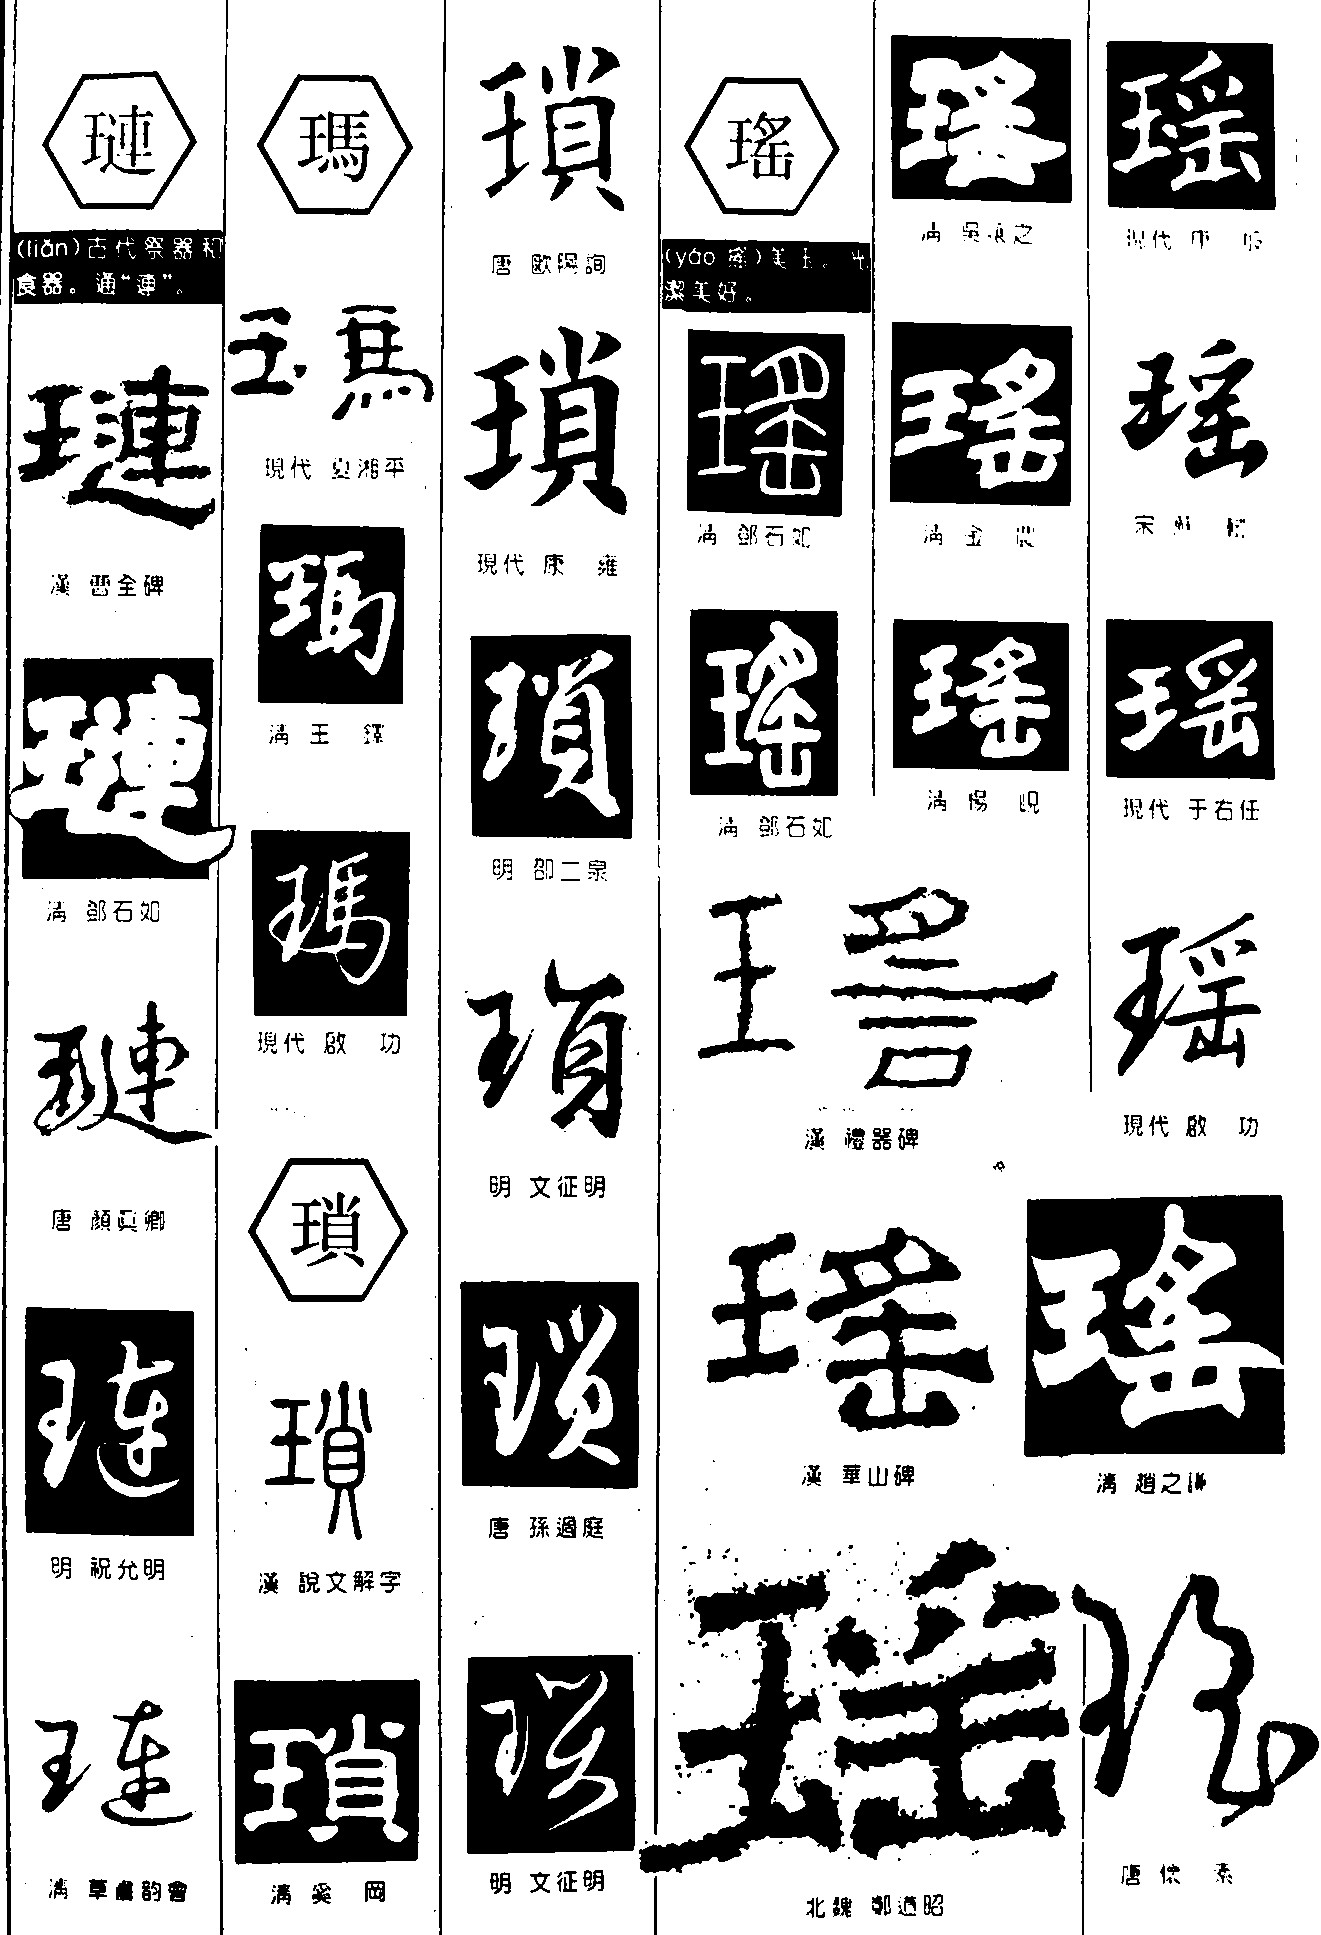 璉
(liǎn)古代祭器和
食器。通“連”。
璉
漢 曹全碑
璉
清 鄧石如
璉
唐 顏真卿
璉
明 祝允明
璉
清 草書韵會
瑪
瑪
現代 夏湘平
瑪
清 王 鐸
瑪
現代 啟 功
瑣
瑣
漢 說文解字
瑣
清 奚 岡
瑣
唐 歐陽詢
瑣
現代 康 雍
瑣
明 邵二泉
瑣
明 文征明
瑣
唐 孫過庭
瑣
明 文征明
瑤
(yáo 搖)美玉。光
潔美好。
瑤
清 鄧石如
瑤
清 鄧石如
瑤
漢 禮器碑
瑤
漢 華山碑
瑤
北魏 鄭道昭
瑤
清 吳讓之
瑤
清 金 農
瑤
清 楊 峴
瑤
清 趙之謙
瑤
現代 康 殷
瑤
宋 蘇 軾
瑤
現代 于右任
瑤
現代 啟 功
瑤
唐 懷 素